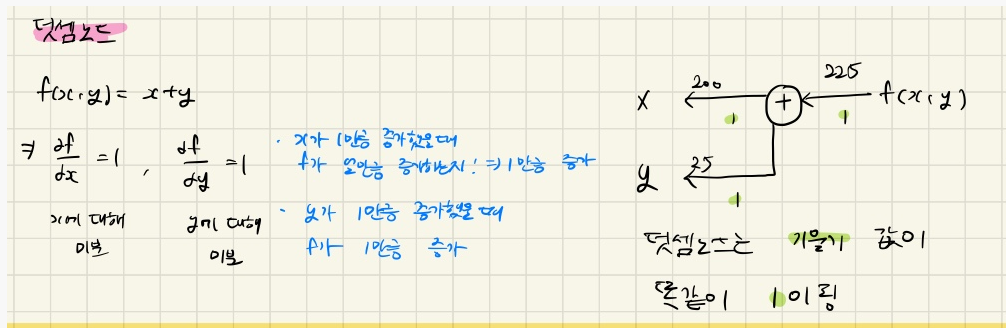 덧셈노드
f(x,y) = x+y
⇒ ∂f/∂x = 1, ∂f/∂y = 1
x에 대해 미분
y에 대해 미분
· x가 1만큼 증가했을 때
f가 얼만큼 증가하는지! ⇒ 1만큼 증가
· y가 1만큼 증가했을 때
f가 1만큼 증가
x 200 + 225 f(x,y)
1 1
y 25
1
덧셈노드는 기울기 값이
똑같이 1이됨